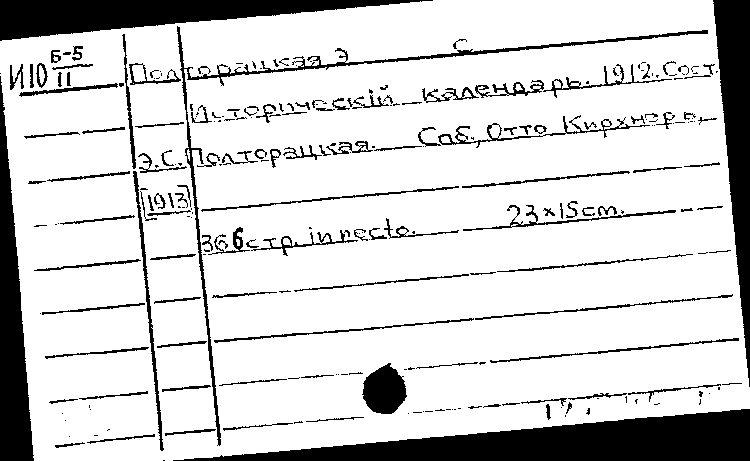 И10 Б-5
II
Полторацкая, Э С
Историческій календарь. 1912. Сост.
Э.С. Полторацкая. Спб., Отто Кирхнера,
[1913]
366 стр. in recto. 23×15 cm.